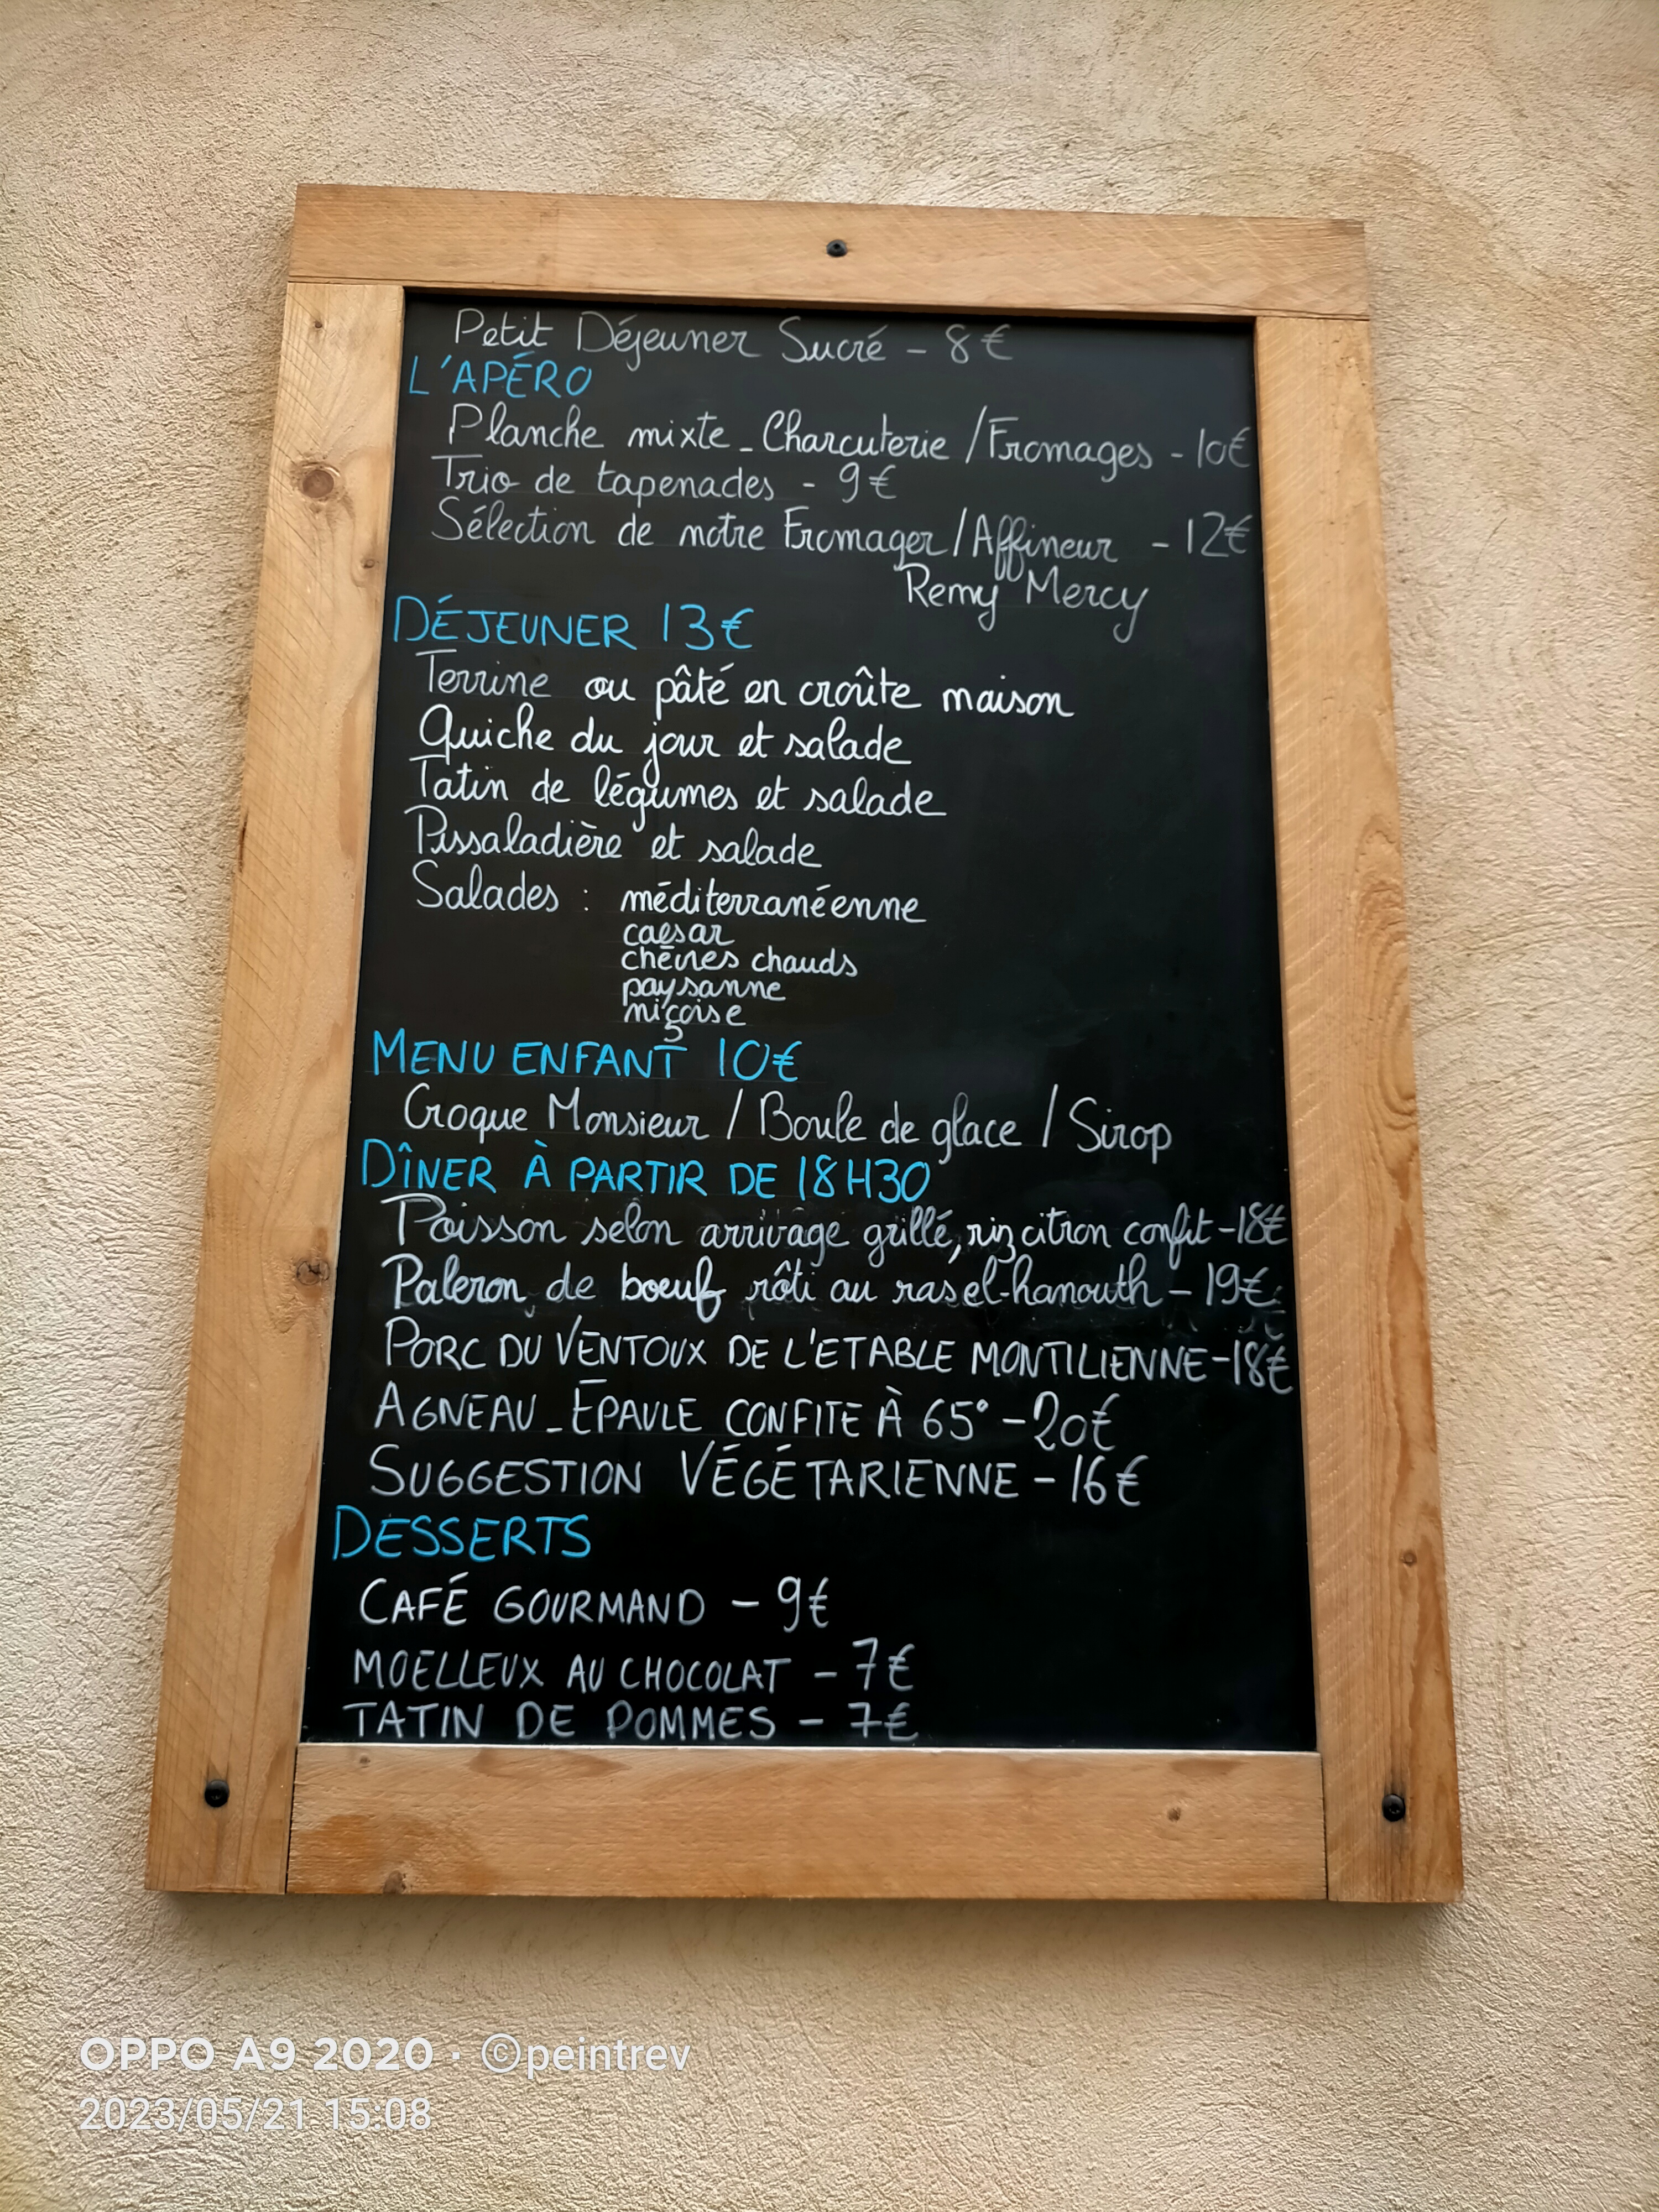 Petit Déjeuner Sucré - 8€
L'APÉRO
Planche mixte - Charcuterie / Fromages - 10€
Trio de tapenades - 9€
Sélection de notre Fromager / Affineur - 12€
Remy Mercy
DÉJEUNER 13€
Terrine ou pâté en croûte maison
Quiche du jour et salade
Tatin de légumes et salade
Pissaladière et salade
Salades : méditerranéenne
caesar
chèvres chauds
paysanne
niçoise
MENU ENFANT 10€
Croque Monsieur / Boule de glace / Sirop
DÎNER À PARTIR DE 18H30
Poisson selon arrivage grillé, riz citron confit - 18€
Paleron de bœuf rôti au ras el-hanouth - 19€
PORC DU VENTOUX DE L'ETABLE MONTILIENNE - 18€
AGNEAU - ÉPAULE CONFITE À 65° - 20€
SUGGESTION VÉGÉTARIENNE - 16€
DESSERTS
CAFÉ GOURMAND - 9€
MOELLEUX AU CHOCOLAT - 7€
TATIN DE POMMES - 7€
OPPO A9 2020 · ©peintrev
2023/05/21 15:08